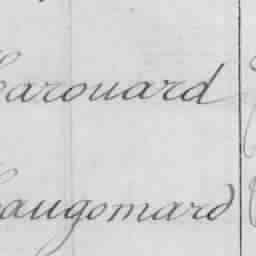 Carouard
Caugomard